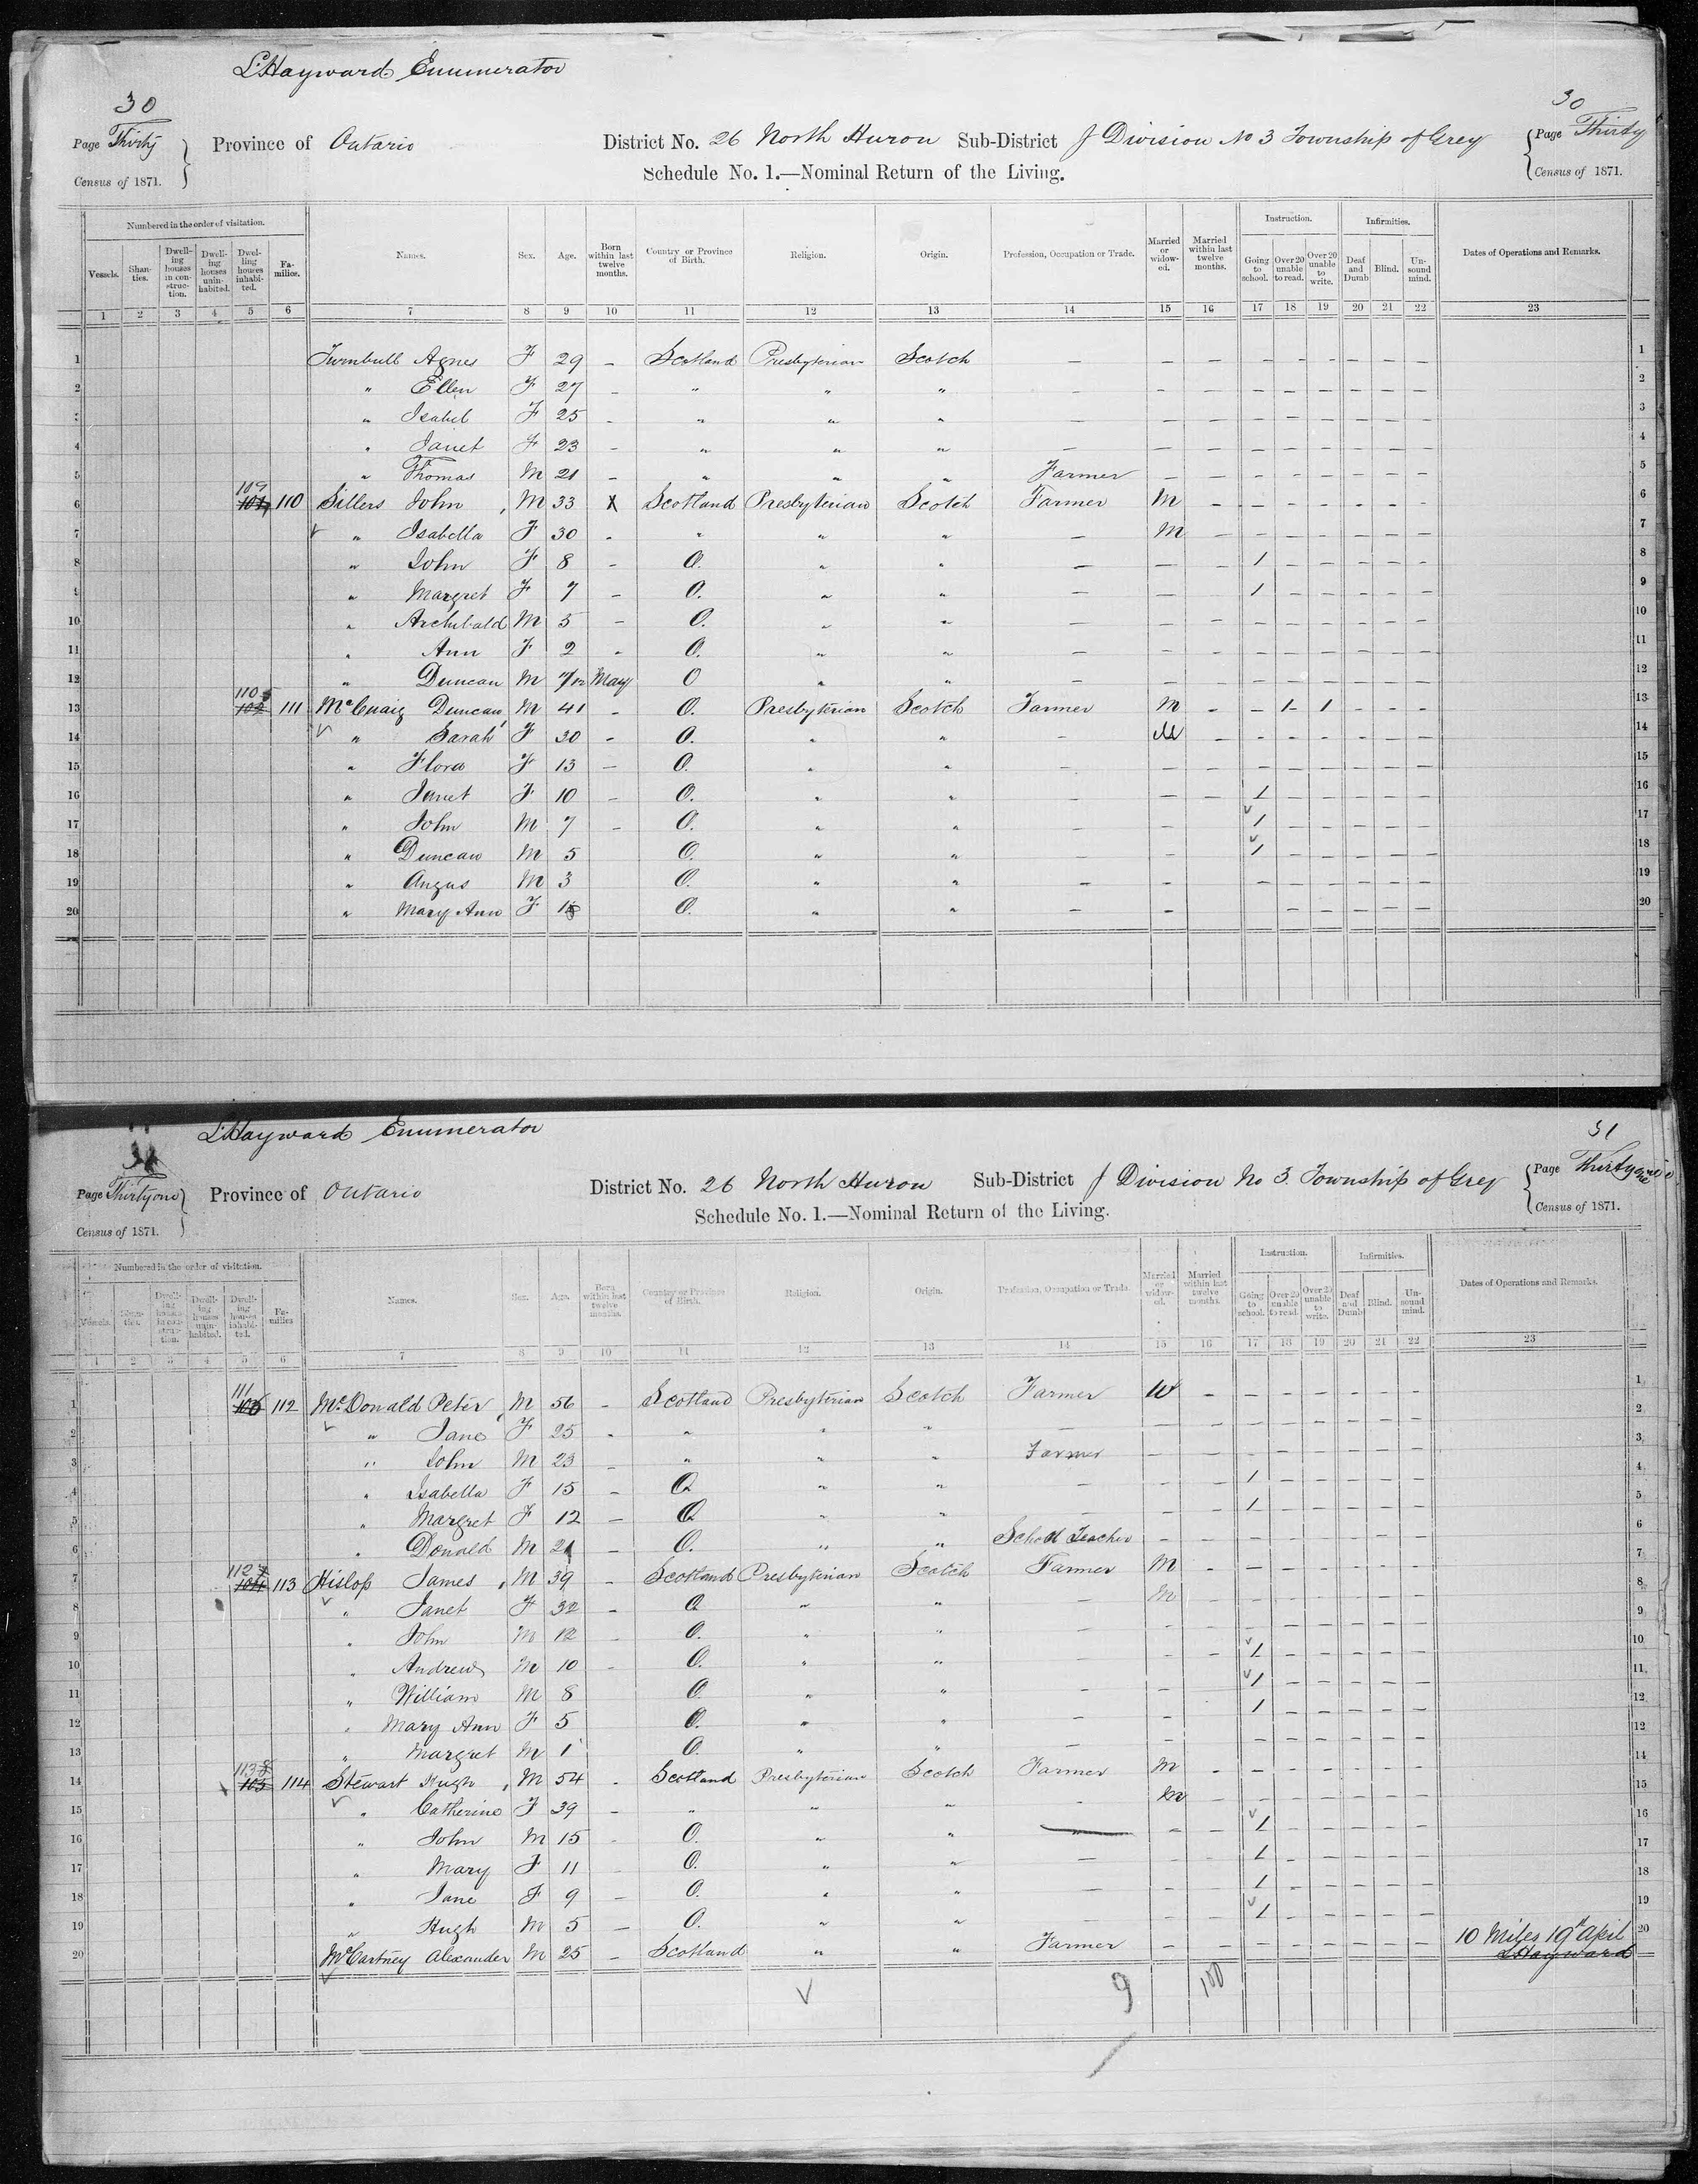 L. Hayward Enumerator
30 30
Page Thirty Province of Ontario District No. 26 North Huron Sub-District J Division No 3 Township of Grey Page Thirty
Census of 1871. Schedule No. 1.—Nominal Return of the Living. Census of 1871.
Numbered in the order of visitation. Instruction. Infirmities.
Vessels. Shanties. Dwelling houses in construction. Dwelling houses uninhabited. Dwelling houses inhabited. Families. Names. Sex. Age. Born within last twelve months. Country or Province of Birth. Religion. Origin. Profession, Occupation or Trade. Married or widowed. Married within last twelve months. Going to school. Over 20 unable to read. Over 20 unable to write. Deaf and Dumb Blind. Unsound mind. Dates of Operations and Remarks.
1 2 3 4 5 6 7 8 9 10 11 12 13 14 15 16 17 18 19 20 21 22 23
1 Turnbull Agnes F 29 – Scotland Presbyterian Scotch – – – – – – – – – 1
2 " Ellen F 27 – " " " – – – – – – – – – 2
3 " Isabel F 25 – " " " – – – – – – – – – 3
4 " Janet F 23 – " " " – – – – – – – – – 4
5 " Thomas M 21 – " " " Farmer – – – – – – – – 5
6 109 110 Sillers John M 33 X Scotland Presbyterian Scotch Farmer M – – – – – – – 6
7 " Isabella F 30 – " " " – M – – – – – – – 7
8 " John F 8 – O. " " – – – 1 – – – – – 8
9 " Margret F 7 – O. " " – – – 1 – – – – – 9
10 " Archibald M 5 – O. " " – – – – – – – – – 10
11 " Ann F 2 – O. " " – – – – – – – – – 11
12 " Duncan M 7/12 May O " " – – – – – – – – – 12
13 110 111 McCuaig Duncan M 41 – O. Presbyterian Scotch Farmer M – – 1 1 – – – 13
14 " Sarah F 30 – O. " " – M – – – – – – – 14
15 " Flora F 13 – O. " " – – – – – – – – – 15
16 " Janet F 10 – O. " " – – – 1 – – – – – 16
17 " John M 7 – O. " " – – – 1 – – – – – 17
18 " Duncan M 5 O. " " – – – 1 – – – – – 18
19 " Angus M 3 O. " " – – – – – – – – 19
20 " Mary Ann F O. " " – – – – – – – 20
L. Hayward Enumerator
31
Page Thirty one Province of Ontario District No. 26 North Huron Sub-District J Division No 3. Township of Grey Page Thirty one
Census of 1871. Schedule No. 1.—Nominal Return of the Living. Census of 1871.
Numbered in the order of visitation. Instruction. Infirmities.
Vessels. Shanties. Dwelling houses in construction. Dwelling houses uninhabited. Dwelling houses inhabited. Families Names. Sex. Age. Born within last twelve months. Country or Province of Birth. Religion. Origin. Profession, Occupation or Trade. Married or widowed. Married within last twelve months. Going to school. Over 20 unable to read. Over 20 unable to write. Deaf and Dumb Blind. Unsound mind. Dates of Operations and Remarks.
1 2 3 4 5 6 7 8 9 10 11 12 13 14 15 16 17 18 19 20 21 22 23
1 111 112 McDonald Peter M 56 – Scotland Presbyterian Scotch Farmer W – – – – – – – 1
2 " Jane F 25 – " " " – – – – – – – – – 2
3 " John M 23 – " " " Farmer – – – – – – – – 3
4 " Isabella F 15 – O " " – – – 1 – – – – – 4
5 " Margret F 12 – O " " – – – 1 – – – – – 5
6 " Donald M 21 – O. " " School Teacher – – – – – – – – 6
7 112 113 Hislop James M 39 – Scotland Presbyterian Scotch Farmer M – – – – – – – 7
8 " Janet F 32 – O " " – M – – – – – – – 8
9 " John M 12 – O. " " – – – – – – – – – 9
10 " Andrew M 10 – O. " " – – – 1 – – – – – 10
11 " William M 8 O. " " – – – 1 – – – – – 11
12 " Mary Ann F 5 O. " " – – 1 – – – – – 12
13 " Margret M 1 O. " " – – – – – – – – 13
14 113 114 Stewart Hugh M 54 – Scotland Presbyterian Scotch Farmer M – – – – – – – 14
15 " Catherine F 39 – " " " – M – – – – – – – 15
16 " John M 15 – O. " " – – – 1 – – – – – 16
17 " Mary F 11 – O. " " – – – 1 – – – – – 17
18 " Jane F 9 – O. " " – – – 1 – – – – – 18
19 " Hugh M 5 – O. " " – – – 1 – – – – – 19
20 McCartney Alexander M 25 – Scotland " " Farmer – – – – – – – – 10 Miles 19th April 20
L Hayward
9 100